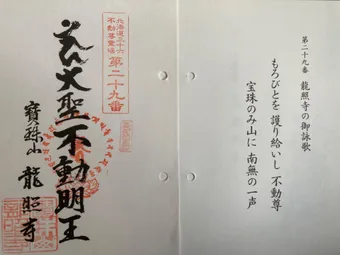 第二十九番 龍照寺の御詠歌
もろびとを 護り給いし 不動尊
宝珠のみ山に 南無の一声
北海道三十六
不動尊霊場
第二十九番
大聖不動明王
寳珠山 龍照寺